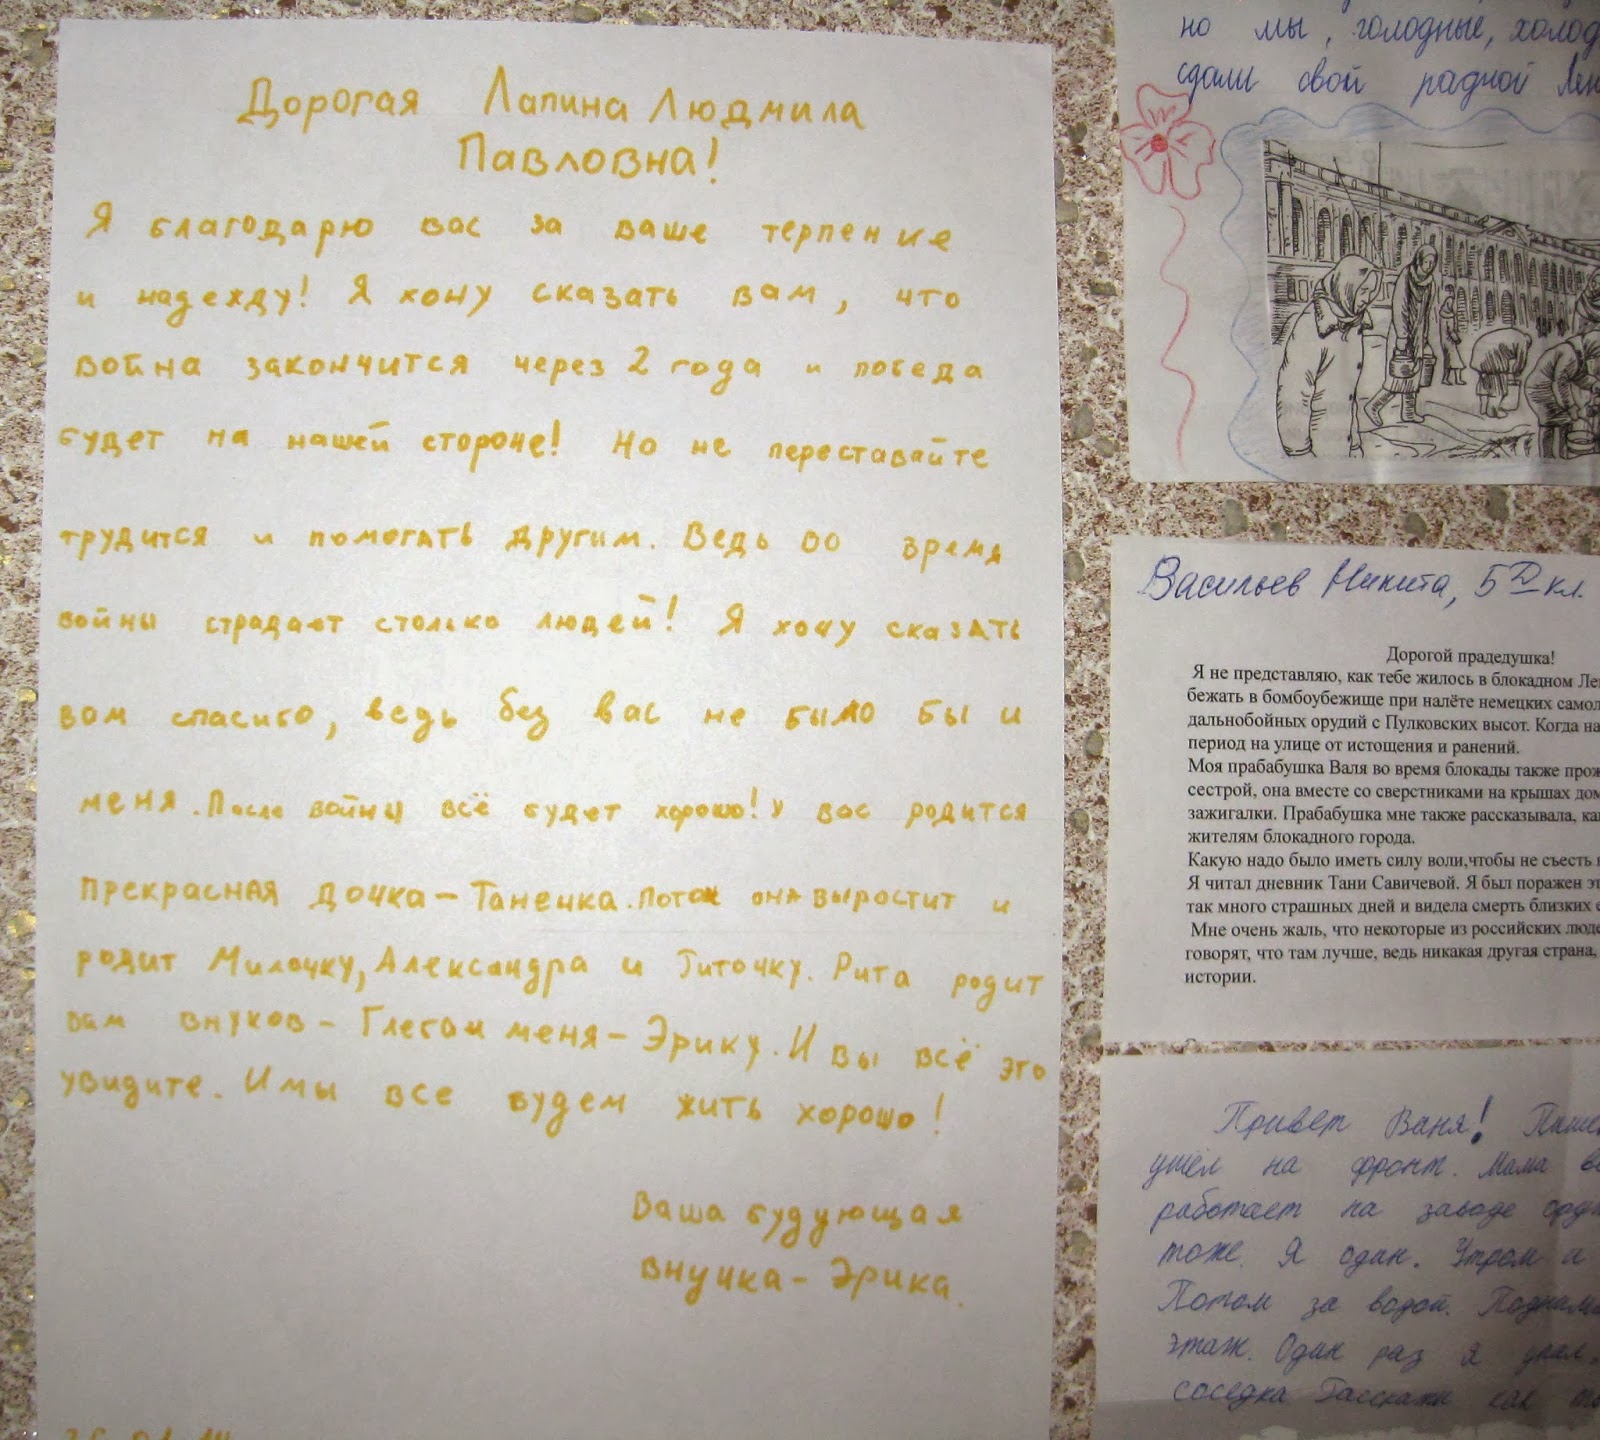 Дорогая Лапина Людмила
Павловна!
Я благодарю вас за ваше терпение
и надежду! Я хочу сказать вам, что
война закончится через 2 года и победа
будет на нашей стороне! Но не переставайте
трудится и помогать другим. Ведь во время
войны страдает столько людей! Я хочу сказать
вам спасибо, ведь без вас не было бы и
меня. После войны всё будет хорошо! У вас родится
прекрасная дочка – Танечка. Потом она выростит и
родит Милочку, Александра и Риточку. Рита родит
вам внуков – Глеба и меня – Эрику. И вы всё это
увидите. И мы все будем жить хорошо!
Ваша будующая
внучка – Эрика.
но мы, голодные, холод
сдали свой радной Лен
Васильев Никита, 5 Д кл.
Дорогой прадедушка!
Я не представляю, как тебе жилось в блокадном Ле
бежать в бомбоубежище при налёте немецких самол
дальнобойных орудий с Пулковских высот. Когда на
период на улице от истощения и ранений.
Моя прабабушка Валя во время блокады также прож
сестрой, она вместе со сверстниками на крышах дом
зажигалки. Прабабушка мне также рассказывала, ка
жителям блокадного города.
Какую надо было иметь силу воли,чтобы не съесть
Я читал дневник Тани Савичевой. Я был поражен эт
так много страшных дней и видела смерть близких
Мне очень жаль, что некоторые из российских люде
говорят, что там лучше, ведь никакая другая страна,
истории.
Привет Ваня! Пише
ушёл на фронт. Мама
работает на заводе
тоже. Я один. Утром и
Потом за водой.
этаж. Один раз я упал.
соседка как